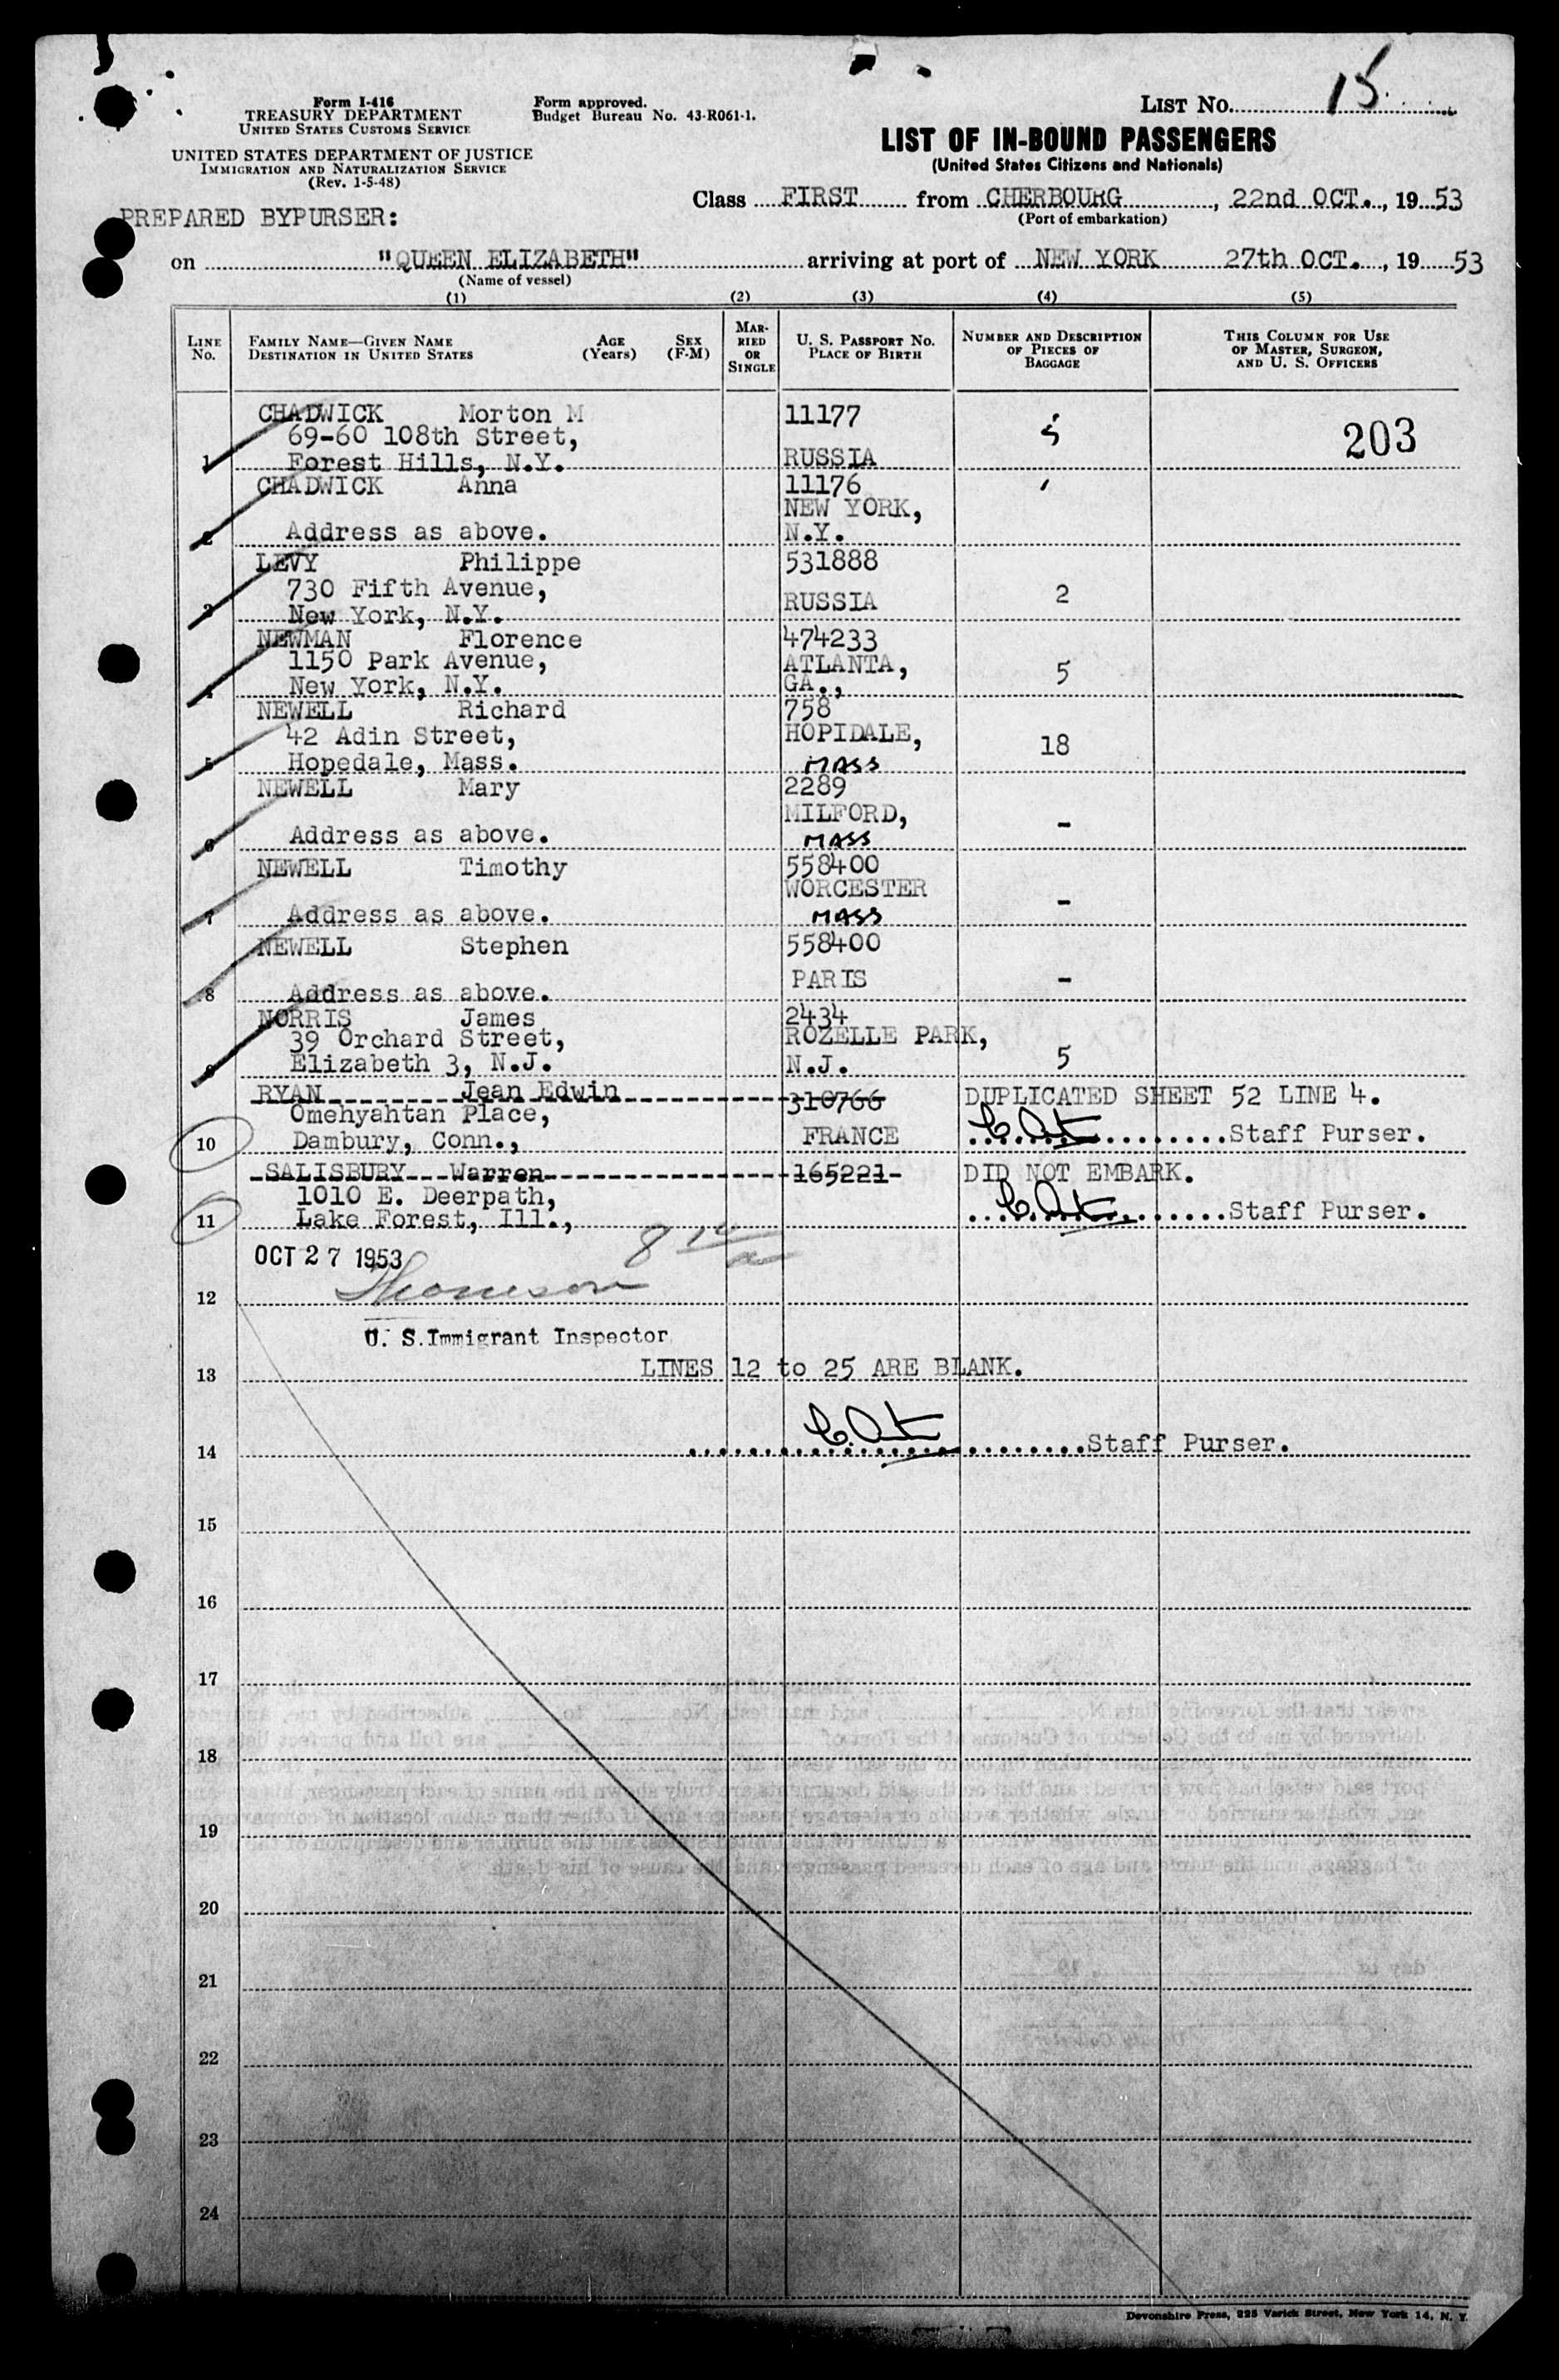 15
Form I-416
TREASURY DEPARTMENT
UNITED STATES CUSTOMS SERVICE
UNITED STATES DEPARTMENT OF JUSTICE
IMMIGRATION AND NATURALIZATION SERVICE
(Rev. 1-5-48)
Form approved.
Budget Bureau No. 43-R061-1.
LIST NO.
LIST OF IN-BOUND PASSENGERS
(United States Citizens and Nationals)
Class FIRST from CHERBOURG, 22nd OCT., 19 53
(Port of embarkation)
PREPARED BYPURSER:
on "QUEEN ELIZABETH" arriving at port of NEW YORK 27th OCT., 19 53
(Name of vessel)
(1) (2) (3) (4) (5)
LINE NO.
FAMILY NAME—GIVEN NAME
DESTINATION IN UNITED STATES
AGE (Years)
SEX (F-M)
MARRIED OR SINGLE
U. S. PASSPORT NO.
PLACE OF BIRTH
NUMBER AND DESCRIPTION OF PIECES OF BAGGAGE
THIS COLUMN FOR USE OF MASTER, SURGEON, AND U. S. OFFICERS
CHADWICK Morton M 11177
69-60 108th Street, 5 203
1 Forest Hills, N.Y. RUSSIA
CHADWICK Anna 11176
NEW YORK,
2 Address as above. N.Y.
LEVY Philippe 531888
730 Fifth Avenue, RUSSIA 2
3 New York, N.Y.
NEWMAN Florence 474233
1150 Park Avenue, ATLANTA, 5
4 New York, N.Y. GA.,
NEWELL Richard 758
42 Adin Street, HOPIDALE, 18
5 Hopedale, Mass. MASS
NEWELL Mary 2289
MILFORD, -
6 Address as above. MASS
NEWELL Timothy 558400
WORCESTER -
7 Address as above. MASS
NEWELL Stephen 558400
PARIS -
8 Address as above.
NORRIS James 2434
39 Orchard Street, ROZELLE PARK,
9 Elizabeth 3, N.J. N.J. 5
RYAN Jean Edwin 310766 DUPLICATED SHEET 52 LINE 4.
Omehyahtan Place,
10 Dambury, Conn., FRANCE Staff Purser.
SALISBURY Warren 165221 DID NOT EMBARK.
1010 E. Deerpath,
11 Lake Forest, Ill., Staff Purser.
OCT 27 1953
12
U. S. Immigrant Inspector
LINES 12 to 25 ARE BLANK.
13
14 Staff Purser.
15
16
17
18
19
20
21
22
23
24
Devonshire Press, 225 Varick Street, New York 14, N. Y.